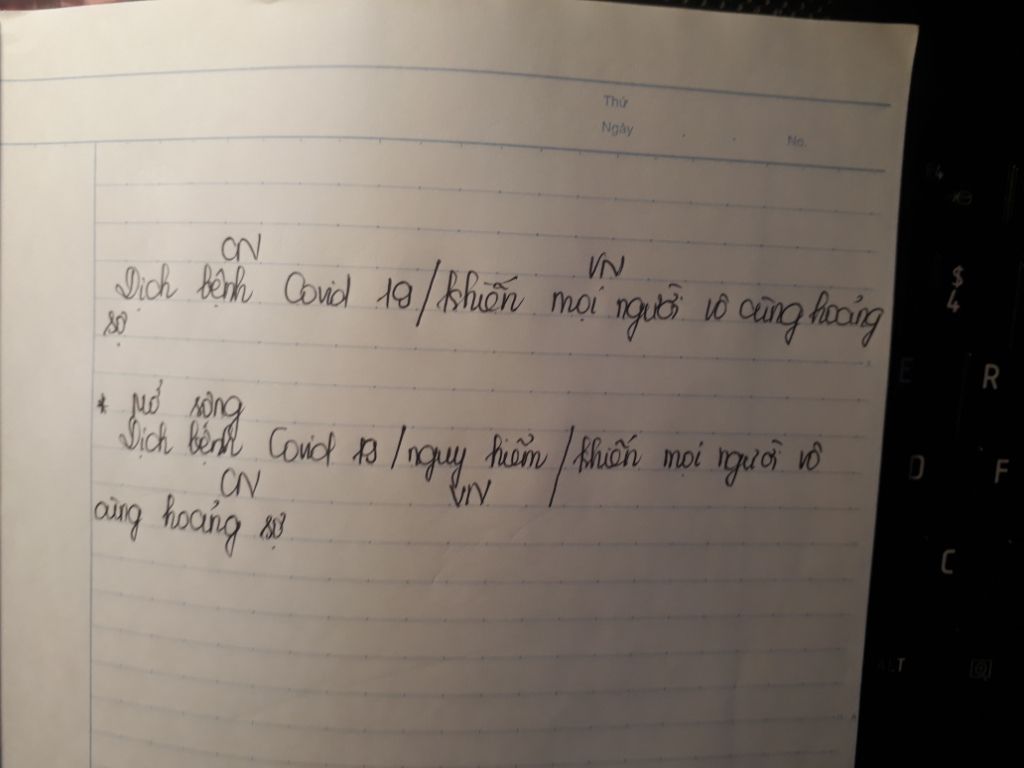 Thứ
Ngày . . No.
CN VN
Dịch bệnh Covid 19/khiến mọi người vô cùng hoảng
sợ
* Mở rộng
Dịch bệnh Covid 19/nguy hiểm/khiến mọi người vô
CN VN
cùng hoảng sợ
$
4
E R
D F
C
ALT